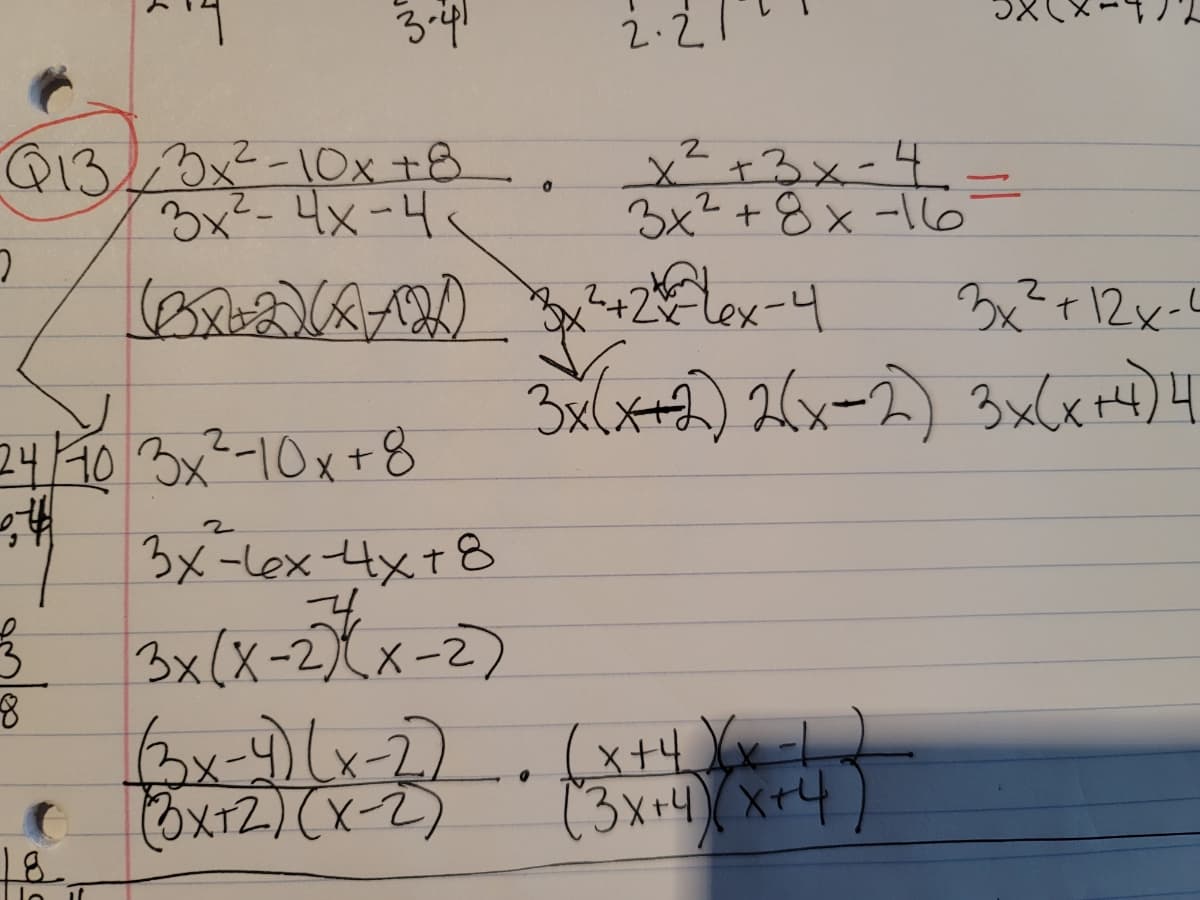 3·4 2·2 3x(x-4)2
Q13 3x²-10x+8 / 3x²-4x-4 · x²+3x-4 / 3x²+8x-16 =
3x²+2x-6x-4 3x²+12x-
3x(x+2) 2(x-2) 3x(x+4)4
24 -10 3x²-10x+8
3x²-6x-4x+8
3x(x-2)-4(x-2)
3
8
(3x-4)(x-2) / (3x+2)(x-2) · (x+4)(x-1) / (3x+4)(x+4)
18